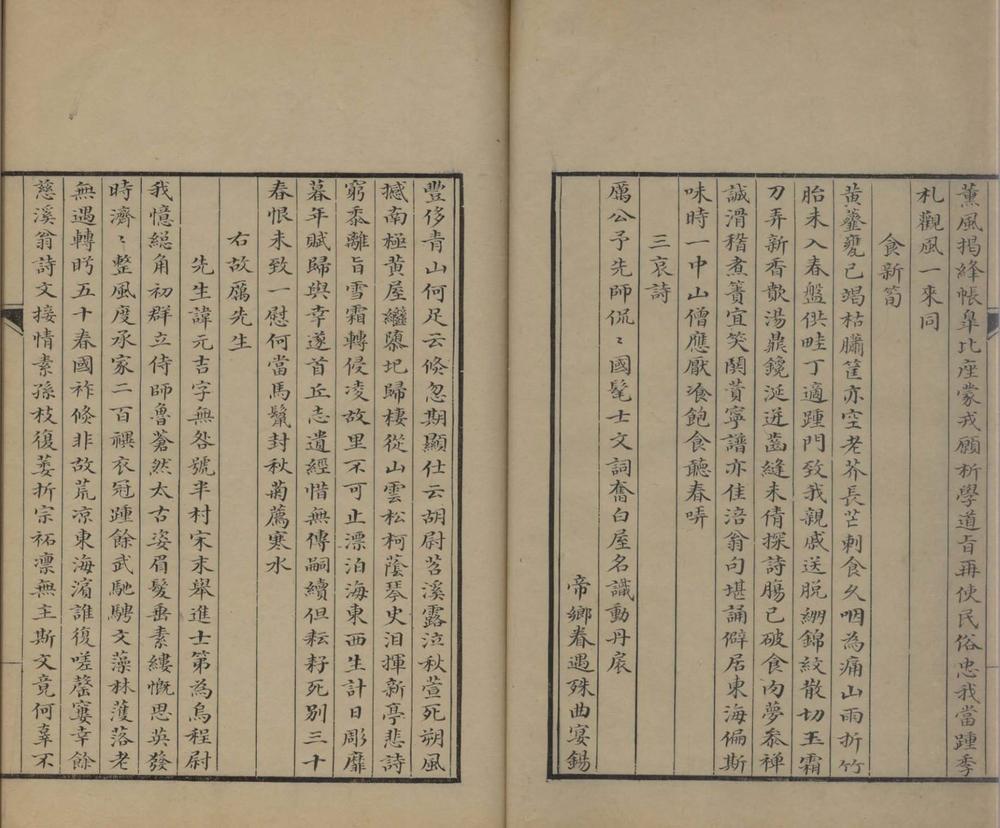 薰風揭絳帳皐比座蒙戎願析學道旨再使民俗忠我當踵季
札觀風一來同
食新筍
黃虀甕已竭枯鱐筐亦空老芥長芒刺食久咽為痛山雨折竹
胎未入春盤供畦丁適踵門致我親戚送脱綳錦紋散切玉霜
刀弄新香歕湯鼎饞涎迸齒縫未倩探詩腸已破食肉夢叅禪
誠滑稽煮簀宜笑閧蕢寧譜亦佳涪翁句堪誦僻居東海偏斯
味時一中山僧應厭飡飽食聽春哢
三哀詩
厲公予先師侃〻國髦士文詞奮白屋名識動丹扆
帝鄉眷遇殊曲宴錫
豐侈青山何足云倏忽期顯仕云胡尉苕溪露泣秋萱死朔風
撼南極黃屋繼隳圮歸棲從山雲松柯蔭琴史泪揮新亭悲詩
窮黍離旨雪霜轉侵凌故里不可止漂泊海東西生計日彫靡
暮年賦歸與幸遂首丘志遺經惜無傳嗣續但耘耔死别三十
春恨未致一慰何當馬鬣封秋菊薦寒水
右故厲先生
先生諱元吉字無咎號半村宋末舉進士第為烏程尉
我憶緦角初群立侍師魯蒼然太古姿眉髮垂素縷慨思英發
時濟〻整風度承家二百禩衣冠踵餘武馳騁文藻林蒦落老
無遇轉眄五十春國祚倏非故荒凉東海濵誰復嗟罄窶幸餘
慈溪翁詩文接情素孫枝復萎折宗祏凛無主斯文竟何辜不